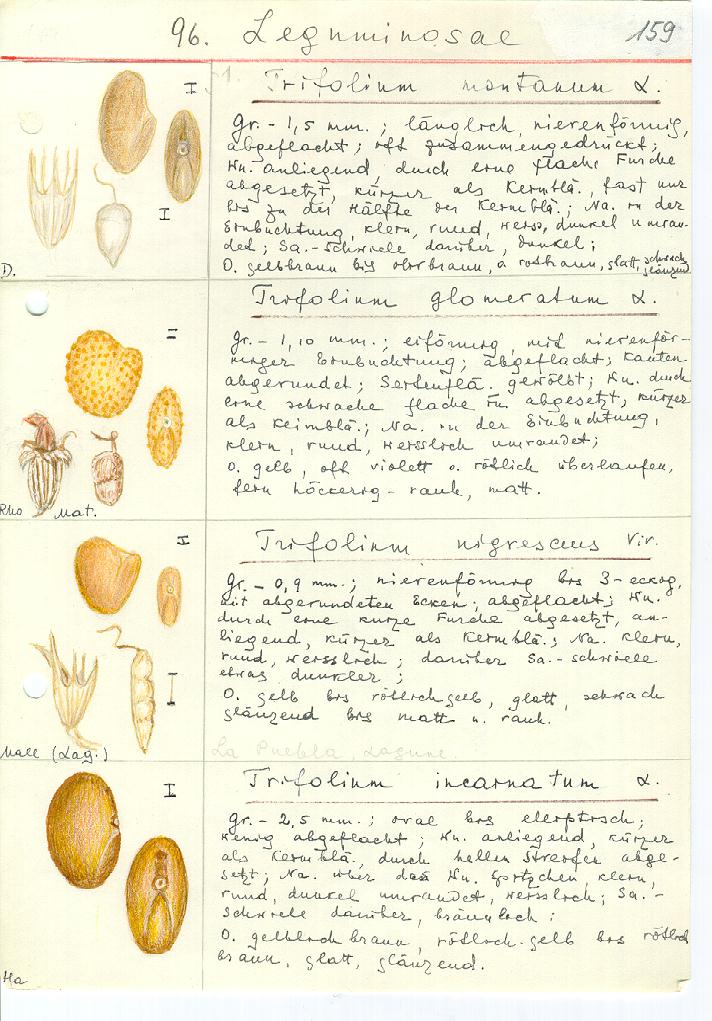 96. Leguminosae 159
Trifolium montanum L.
Gr. - 1,5 mm. ; länglich, nierenförmig,
abgeflacht ; oft zusammengedrückt ;
Wu. anliegend, durch eine flache Furche
abgesetzt, kürzer als Keimblä., fast nur
bis zu der Hälfte der Keimblä. ; Na. in der
Einbuchtung, klein, rund, weiss, dunkel umran-
det ; Sa.-schwiele darüber, dunkel ;
O. gelbbraun bis olivbraun, a rotbraun, glatt, schwach
glänzend
D.
Trifolium glomeratum L.
Gr. - 1,10 mm. ; eiförmig, mit nierenför-
miger Einbuchtung ; abgeflacht ; Kanten-
abgerundet ; Seitenflä. gewölbt ; Wu. durch
eine schwache flache Fu abgesetzt, kürzer
als Keimblä. ; Na. in der Einbuchtung,
klein, rund, weisslich umrandet ;
O. gelb, oft violett o. rötlich überlaufen,
fein höckerig - rauh, matt.
Rho Mat.
Trifolium nigrescens Viv.
Gr. - 0,9 mm. ; nierenförmig bis 3-eckig,
mit abgerundeten Ecken ; abgeflacht ; Wu.
durch eine kurze Furche abgesetzt, an-
liegend, kürzer als Keimblä. ; Na. klein,
rund, weisslich ; darüber Sa.-schwiele
etwas dunkler ;
O. gelb bis rötlichgelb, glatt, schwach
glänzend bis matt u. rauh.
Mall (Lag.)
La Puebla, Lagune.
Trifolium incarnatum L.
Gr. - 2,5 mm. ; oval bis elliptisch ;
wenig abgeflacht ; Wu. anliegend, kürzer
als Keimblä., durch hellen Streifen abge-
setzt ; Na. über das Wu. Spitzchen, klein,
rund, dunkel umrandet, weisslich ; Sa.-
Schwiele darüber, bräunlich ;
O. gelblich braun, rötlich-gelb bis rötlich
braun, glatt, glänzend.
Ha